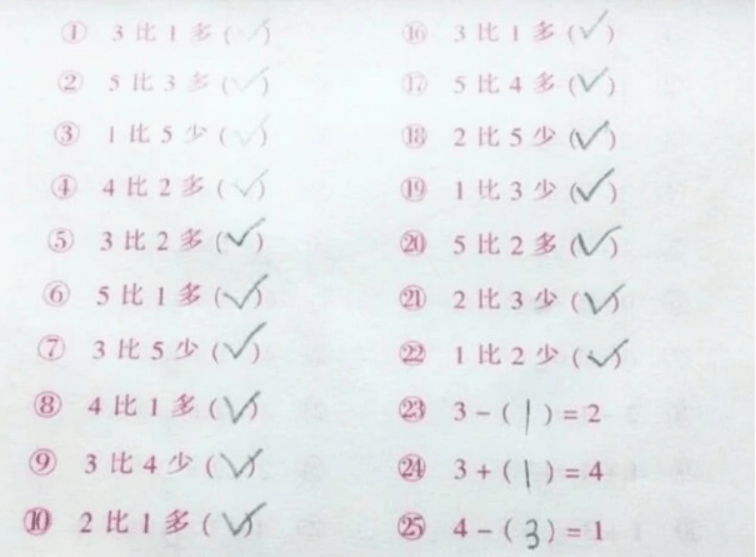 ① 3比1多(✓)
② 5比3多(✓)
③ 1比5少(✓)
④ 4比2多(✓)
⑤ 3比2多(✓)
⑥ 5比1多(✓)
⑦ 3比5少(✓)
⑧ 4比1多(✓)
⑨ 3比4少(✓)
⑩ 2比1多(✓)
⑯ 3比1多(✓)
⑰ 5比4多(✓)
⑱ 2比5少(✓)
⑲ 1比3少(✓)
⑳ 5比2多(✓)
㉑ 2比3少(✓)
㉒ 1比2少(✓)
㉓ 3-(1)=2
㉔ 3+(1)=4
㉕ 4-(3)=1